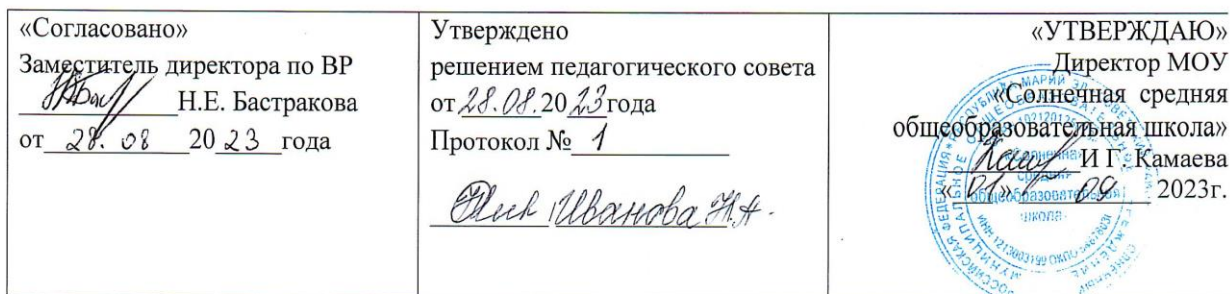 «Согласовано»
Заместитель директора по ВР
Н.Е. Бастракова
от 28. 08 2023 года
Утверждено
решением педагогического совета
от 28.08.2023 года
Протокол № 1
Иванова Н.А.
«УТВЕРЖДАЮ»
Директор МОУ
«Солнечная средняя
общеобразовательная школа»
И Г. Камаева
« 01» 09 2023г.
«Солнечная
средняя
общеобразовательная
школа»